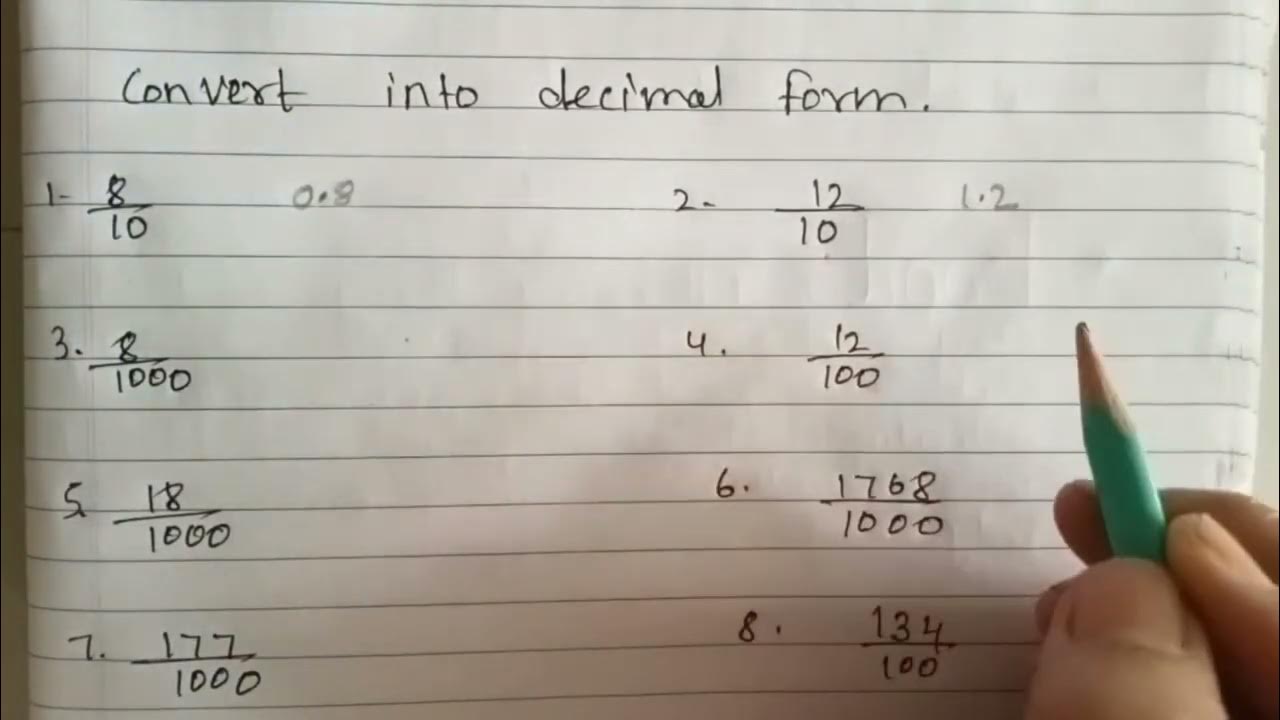 Convert into decimal form.
1- 8/10 0.8 2- 12/10 1.2
3. 8/1000 4. 12/100
5. 18/1000 6. 1768/1000
7. 177/1000 8. 134/100